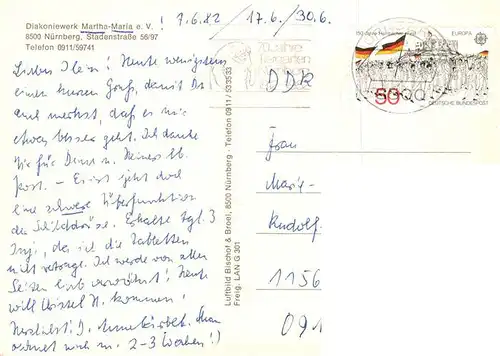 Diakoniewerk Martha-Maria e. V. !
8500 Nürnberg, Stadenstraße 56/97
Telefon 0911/59741
7.6.82 / 17.6. / 30.6.
Heute wenigstens
einen kurzen Gruß, damit Du
auch merkst, daß es mir
etwas besser geht. Ich danke
Dir für Deine u. Deiner lb.
Post. - Es ist jetzt doch
eine schwere Überfunktion
der Schilddrüse. Erhalte tgl. 3
Inj., da ich die Tabletten
nicht vertrage. Ich werde von allen
Seiten lieb verwöhnt! Heute
will Christel N. kommen!
Herzlichst! D.
noch m. 2-3 Wochen!)
Luftbild Bischof & Broel, 8500 Nürnberg · Telefon 0911 / 533533
Freig. LAN G 301
70 Jahre
Tiergarten
EUROPA
50
DEUTSCHE BUNDESPOST
DDR
Frau
Marie-
Rudolf-
1156
091